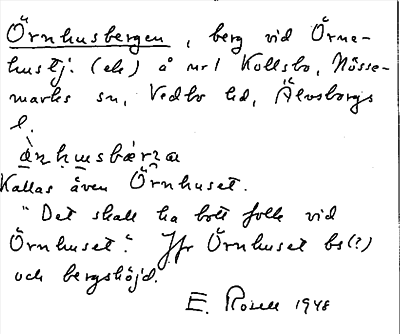 Örnhusbergen, berg vid Örne-
hustj. (ek) å nr 1 Kollsbo, Nösse-
marks sn, Vedbo hd, Älvsborgs
l.
ànhusbærɜa
Kallas även Örnhuset.
"Det skall ha bott folk vid
Örnhuset." Jfr Örnhuset bs(?)
och bergshöjd.
E. Rosell 1948